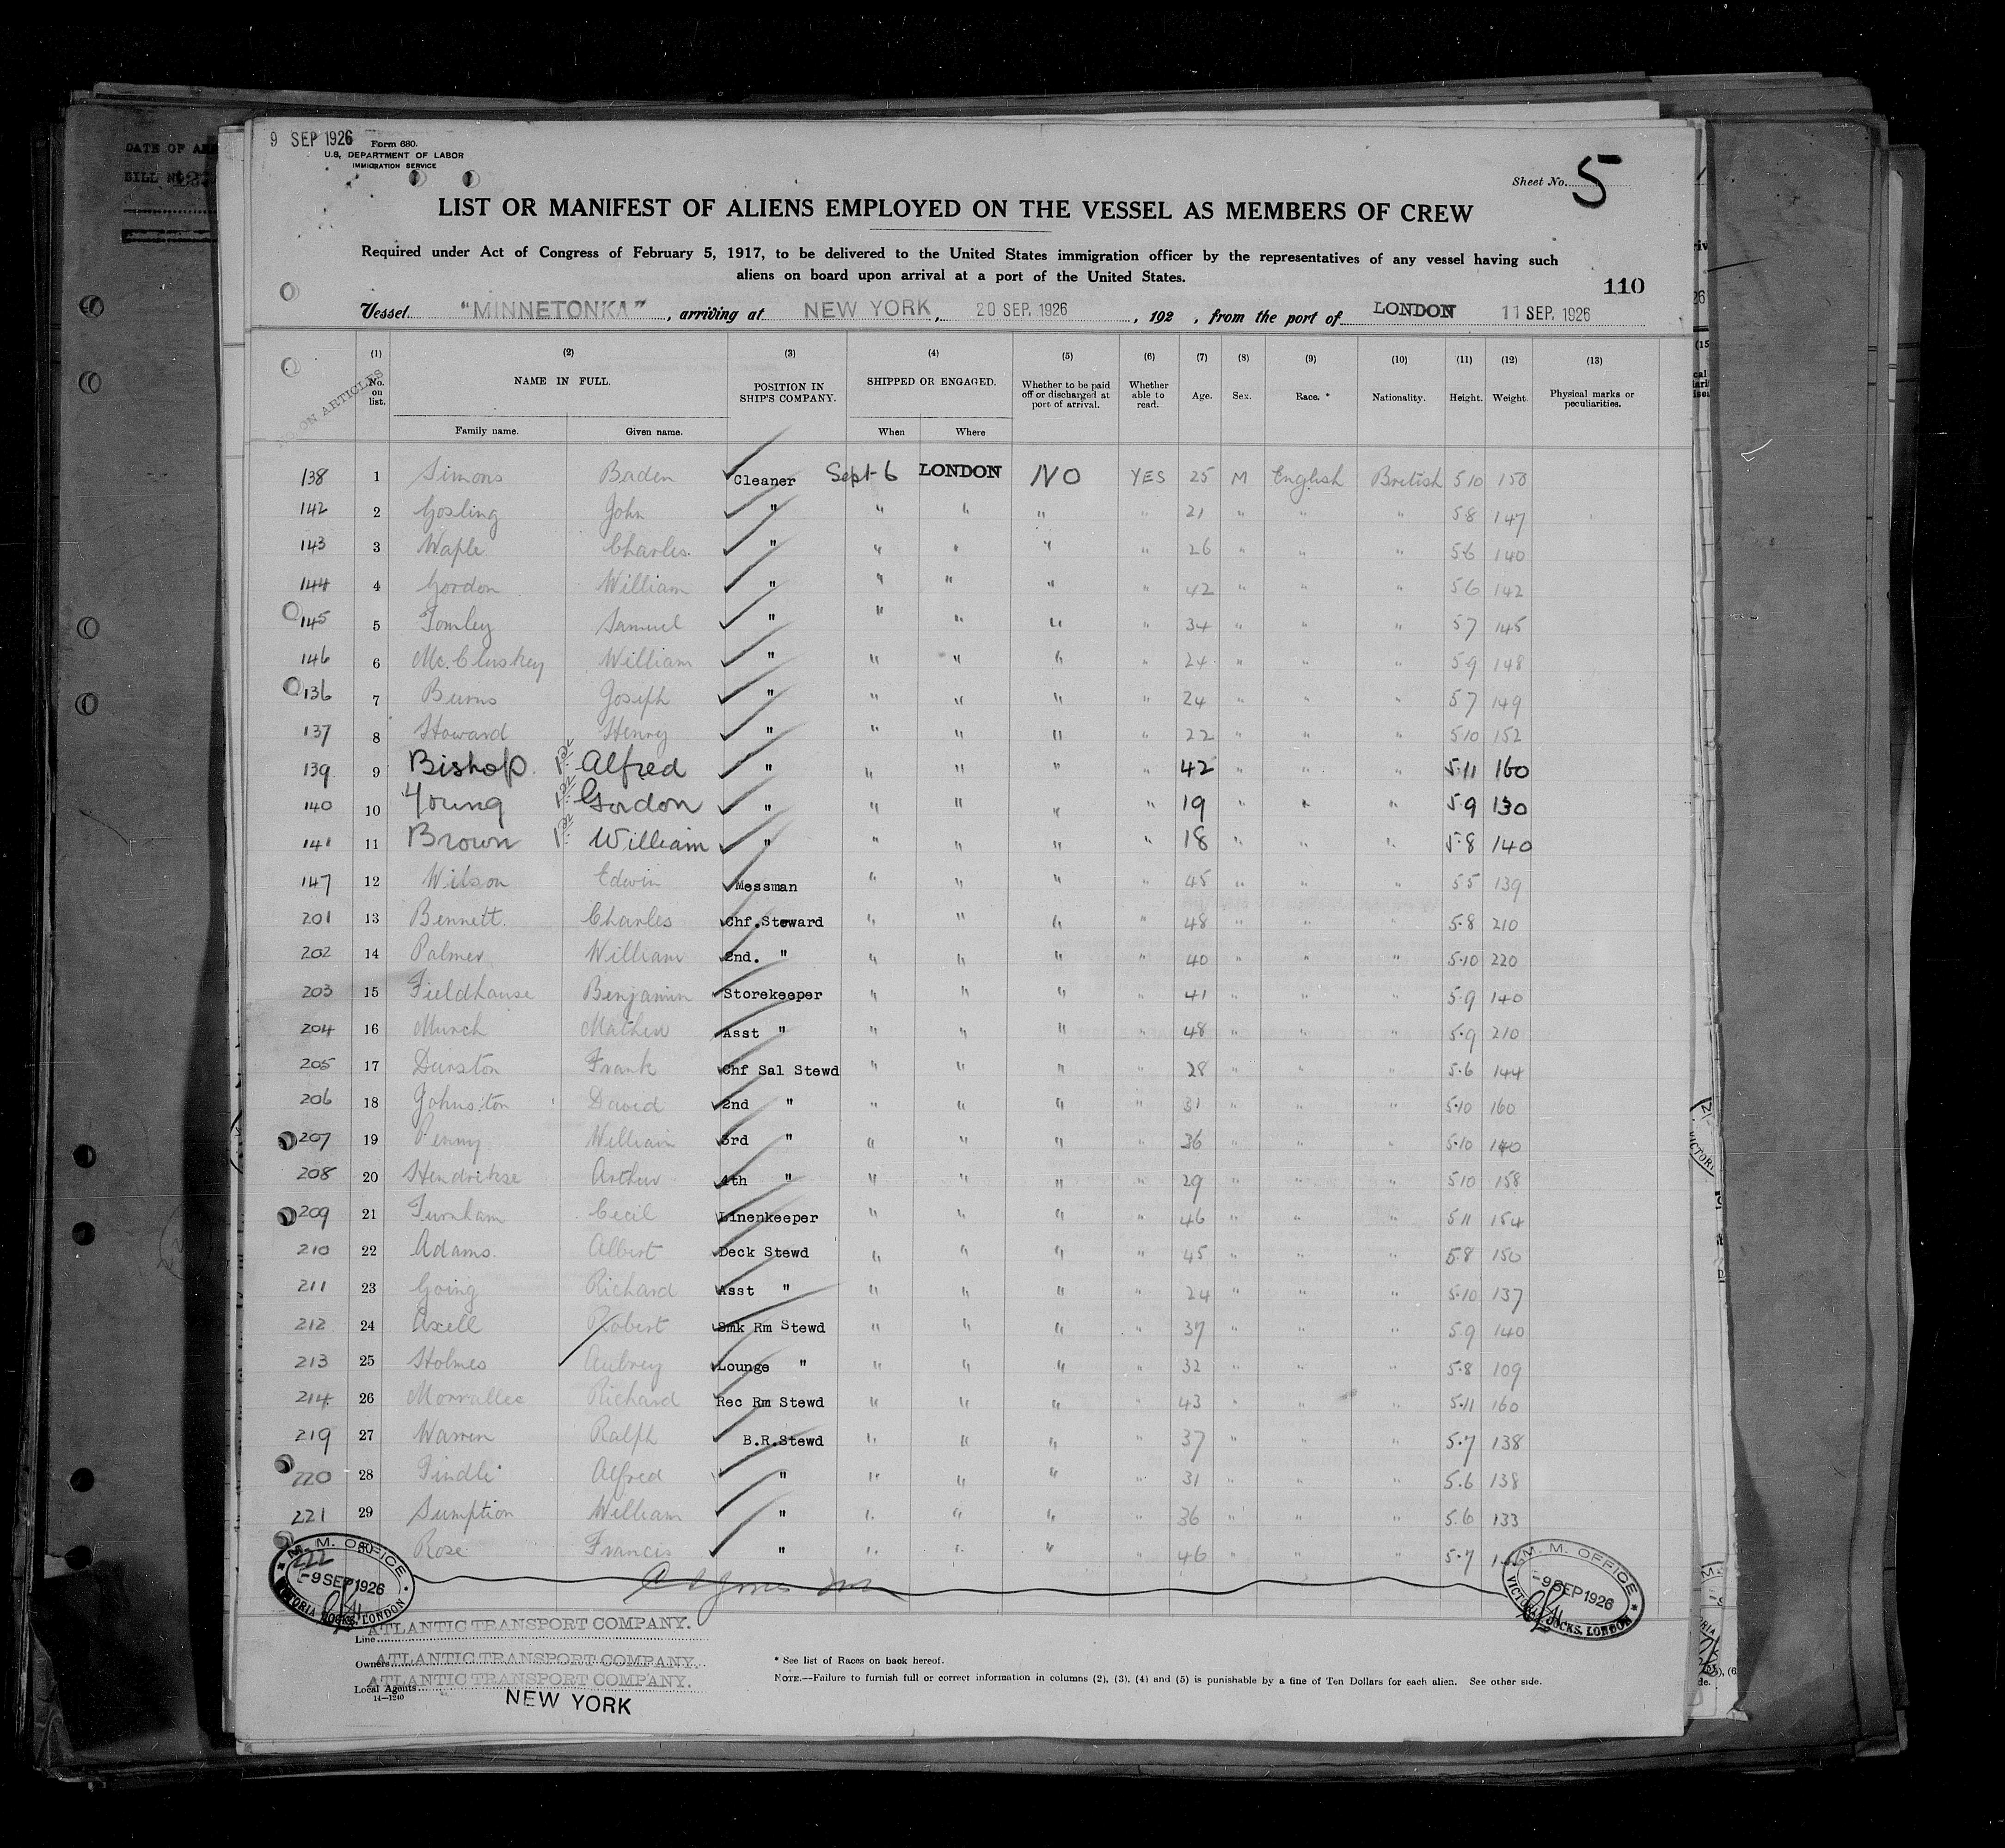 9 SEP 1926
Form 680.
U.S. DEPARTMENT OF LABOR
IMMIGRATION SERVICE
DATE OF
BILL NO
Sheet No. 5
LIST OR MANIFEST OF ALIENS EMPLOYED ON THE VESSEL AS MEMBERS OF CREW
Required under Act of Congress of February 5, 1917, to be delivered to the United States immigration officer by the representatives of any vessel having such
aliens on board upon arrival at a port of the United States.
110
Vessel "MINNETONKA", arriving at NEW YORK, 20 SEP. 1926, 192 , from the port of LONDON 11 SEP. 1926
ON ARTICLES
(1) (2) (3) (4) (5) (6) (7) (8) (9) (10) (11) (12) (13)
No. on list. NAME IN FULL. POSITION IN SHIP'S COMPANY. SHIPPED OR ENGAGED. Whether to be paid off or discharged at port of arrival. Whether able to read. Age. Sex. Race. * Nationality. Height. Weight. Physical marks or peculiarities.
Family name. Given name. When Where
138 1 Simons Baden Cleaner Sept 6 LONDON NO YES 25 M English British 5 10 150
142 2 Gosling John " " " " " 21 " " " 5 8 147
143 3 Waple Charles " " " " " 26 " " " 5 6 140
144 4 Gordon William " " " " " 42 " " " 5 6 142
145 5 Tomley Samuel " " " " " 34 " " " 5 7 145
146 6 Mc.Cluskey William " " " " " 24 " " " 5 9 148
136 7 Burns Joseph " " " " " 24 " " " 5 7 149
137 8 Howard Henry " " " " " 22 " " " 5 10 152
139 9 Bishop Alfred " " " " " 42 " " " 5.11 160
140 10 Young Gordon " " " " " 19 " " " 5.9 130
141 11 Brown William " " " " " 18 " " " 5.8 140
147 12 Wilson Edwin Messman " " " " 45 " " " 5 5 139
201 13 Bennett. Charles Chf.Steward " " " " 48 " " " 5.8 210
202 14 Palmer William 2nd. " " " " " 40 " " " 5.10 220
203 15 Fieldhouse Benjamin Storekeeper " " " " 41 " " " 5.9 140
204 16 Munch Mathew Asst " " " " " 48 " " " 5.9 210
205 17 Dunston Frank Chf Sal Stewd " " " " 28 " " " 5.6 144
206 18 Johnston David 2nd " " " " " 31 " " " 5.10 160
207 19 Penny William 3rd " " " " " 36 " " " 5.10 140
208 20 Hendrikse Arthur 4th " " " " " 29 " " " 5 10 158
209 21 Furnham Cecil Linenkeeper " " " " 46 " " " 5 11 154
210 22 Adams. Albert Deck Stewd " " " " 45 " " " 5.8 150
211 23 Going Richard Asst " " " " " 24 " " " 5.10 137
212 24 Axell Robert Smk Rm Stewd " " " " 37 " " " 5.9 140
213 25 Holmes Aubrey Lounge " " " " " 32 " " " 5.8 109
214 26 Morrallee Richard Rec Rm Stewd " " " " 43 " " " 5.11 160
219 27 Warren Ralph B.R.Stewd " " " " 37 " " " 5.7 138
220 28 Alfred " " " " " 31 " " " 5.6 138
221 29 Sumption William " " " " " 36 " " " 5.6 133
222 30 Rose Francis " " " " " 46 " " " 5.7
M. M. OFFICE
-9 SEP 1926
VICTORIA DOCKS. LONDON
M. M. OFFICE
-9 SEP 1926
VICTORIA DOCKS. LONDON
Line ATLANTIC TRANSPORT COMPANY.
Owners ATLANTIC TRANSPORT COMPANY.
Local Agents ATLANTIC TRANSPORT COMPANY.
14—1240
NEW YORK
* See list of Races on back hereof.
NOTE.—Failure to furnish full or correct information in columns (2), (3), (4) and (5) is punishable by a fine of Ten Dollars for each alien. See other side.